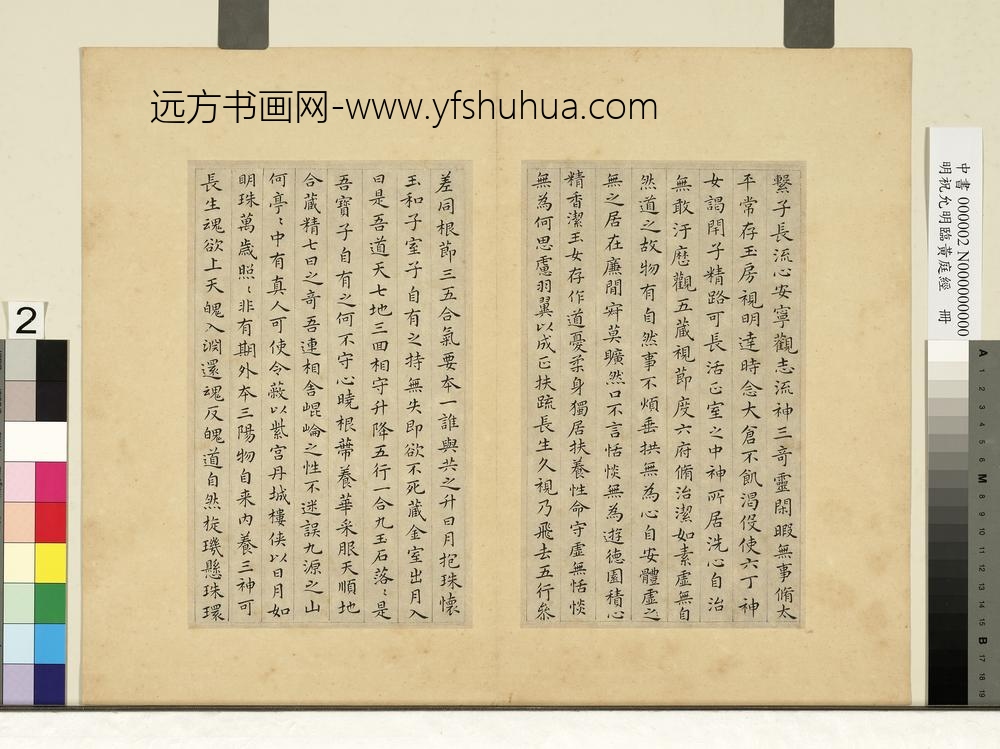 远方书画网-www.yfshuhua.com
繫子長流心安寧觀志流神三奇靈閑暇無事脩太
平常存玉房視明達時念大倉不飢渴役使六丁神
女謁閉子精路可長活正室之中神所居洗心自治
無敢汙歷觀五藏視節度六府脩治潔如素虛無自
然道之故物有自然事不煩垂拱無為心自安體虛之
無之居在廉間寂莫曠然口不言恬惔無為遊德園積心
精香潔玉女存作道憂柔身獨居扶養性命守虛無恬惔
無為何思慮羽翼以成正扶疏長生久視乃飛去五行參
差同根節三五合氣要本一誰與共之升日月抱珠懷
玉和子室子自有之持無失即欲不死藏金室出月入
日是吾道天七地三回相守升降五行一合九玉石落〻是
吾寶子自有之何不守心曉根蔕養華采服天順地
合藏精七日之奇吾連相舍崐崘之性不迷誤九源之山
何亭〻中有真人可使令蔽以紫宮丹城樓俠以日月如
明珠萬歲照〻非有期外本三陽物自來內養三神可
長生魂欲上天魄入淵還魂反魄道自然旋璣懸珠環
中書 000002 N000000000
明祝允明臨黃庭經 冊
2
A 1 2 3 4 5 6 M 8 9 10 11 12 13 14 15 B 17 18 19